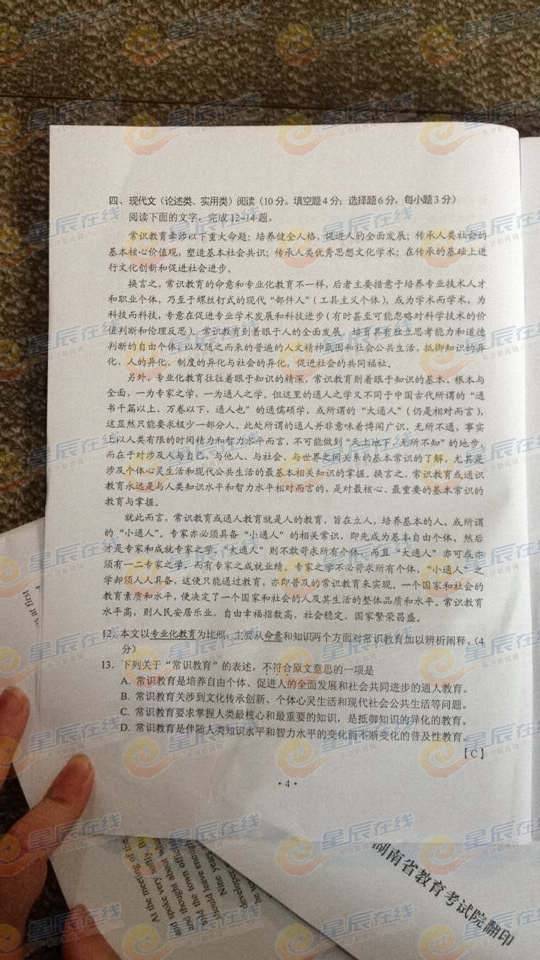 四、现代文（论述类、实用类）阅读（10分。填空题4分；选择题6分，每小题3分）
阅读下面的文字，完成12~14题。
常识教育牵涉以下重大命题：培养健全人格，促进人的全面发展；传承人类社会的
基本核心价值观，塑造基本社会共识；传承人类优秀思想文化学术；在传承的基础上进
行文化创新和促进社会进步。
换言之，常识教育的命意和专业化教育不一样，后者主要措意于培养专业技术人才
和职业个体，乃至于螺丝钉式的现代“部件人”（工具主义个体），成为学术而学术，为
科技而科技，专意在促进专业学术发展和科技进步（有时甚至可能忽略对科学技术的价
值判断和伦理反思）。常识教育则着眼于人的全面发展，培育具有独立思考能力和道德
判断的自由个体，以及随之而来的普遍的人文精神氛围和社会公共生活，抵御知识的异
化、人的异化、制度的异化与社会的异化，促进社会的共同福祉。
另外，专业化教育往往着眼于知识的精深，常识教育则着眼于知识的基本、根本与
全面，一为专家之学，一为通人之学。但这里的通人之学又不同于中国古代所谓的“通
书千篇以上，万卷以下，通人也”的通儒硕学，或所谓的“大通人”（仍是相对而言），
这显然只能要求极少一部分人。此处所谓的通人并非意味着博闻广识，无所不通，事实
上以人类有限的时间精力和智力水平而言，不可能做到“天上地下，无所不知”的地步；
而在于对涉及人与自己、与他人、与社会、与世界之间关系的基本常识的了解，尤其是
涉及个体心灵生活和现代公共生活的最基本相关知识的掌握。换言之，常识教育或通识
教育永远是与人类知识水平和智力水平相对而言的，是对最核心、最重要的基本常识的
教育与掌握。
就此而言，常识教育或通人教育就是人的教育，旨在立人，培养基本的人，或所谓
的“小通人”。专家亦必须具备“小通人”的相关常识，即先成为基本自由个体，然后
才是专家和成就专家之学。“大通人”则不敢苛求所有个体，而且“大通人”亦可或亦
须有一二专家之学，而有专家之成就业绩。专家之学不必苛求所有个体，“小通人”之
学却须人人具备，这便只能通过教育，亦即普及的常识教育来实现。一个国家和社会的
教育素质和水平，便决定了一个国家和社会的人及其生活的整体品质和水平。常识教育
水平高，则人民安居乐业，自由幸福指数高，社会稳定，国家繁荣昌盛。
12. 本文以专业化教育为比照，主要从命意和知识两个方面对常识教育加以辨析阐释。（4
分）
13. 下列关于“常识教育”的表述，不符合原文意思的一项是
A. 常识教育是培养自由个体、促进人的全面发展和社会共同进步的通人教育。
B. 常识教育关涉到文化传承创新、个体心灵生活和现代社会公共生活等问题。
C. 常识教育要求掌握人类最核心和最重要的知识，是抵御知识的异化的教育。
D. 常识教育是伴随人类知识水平和智力水平的变化而不断变化的普及性教育。
【C】
·4·
湖南省教育考试院翻印
星辰在线